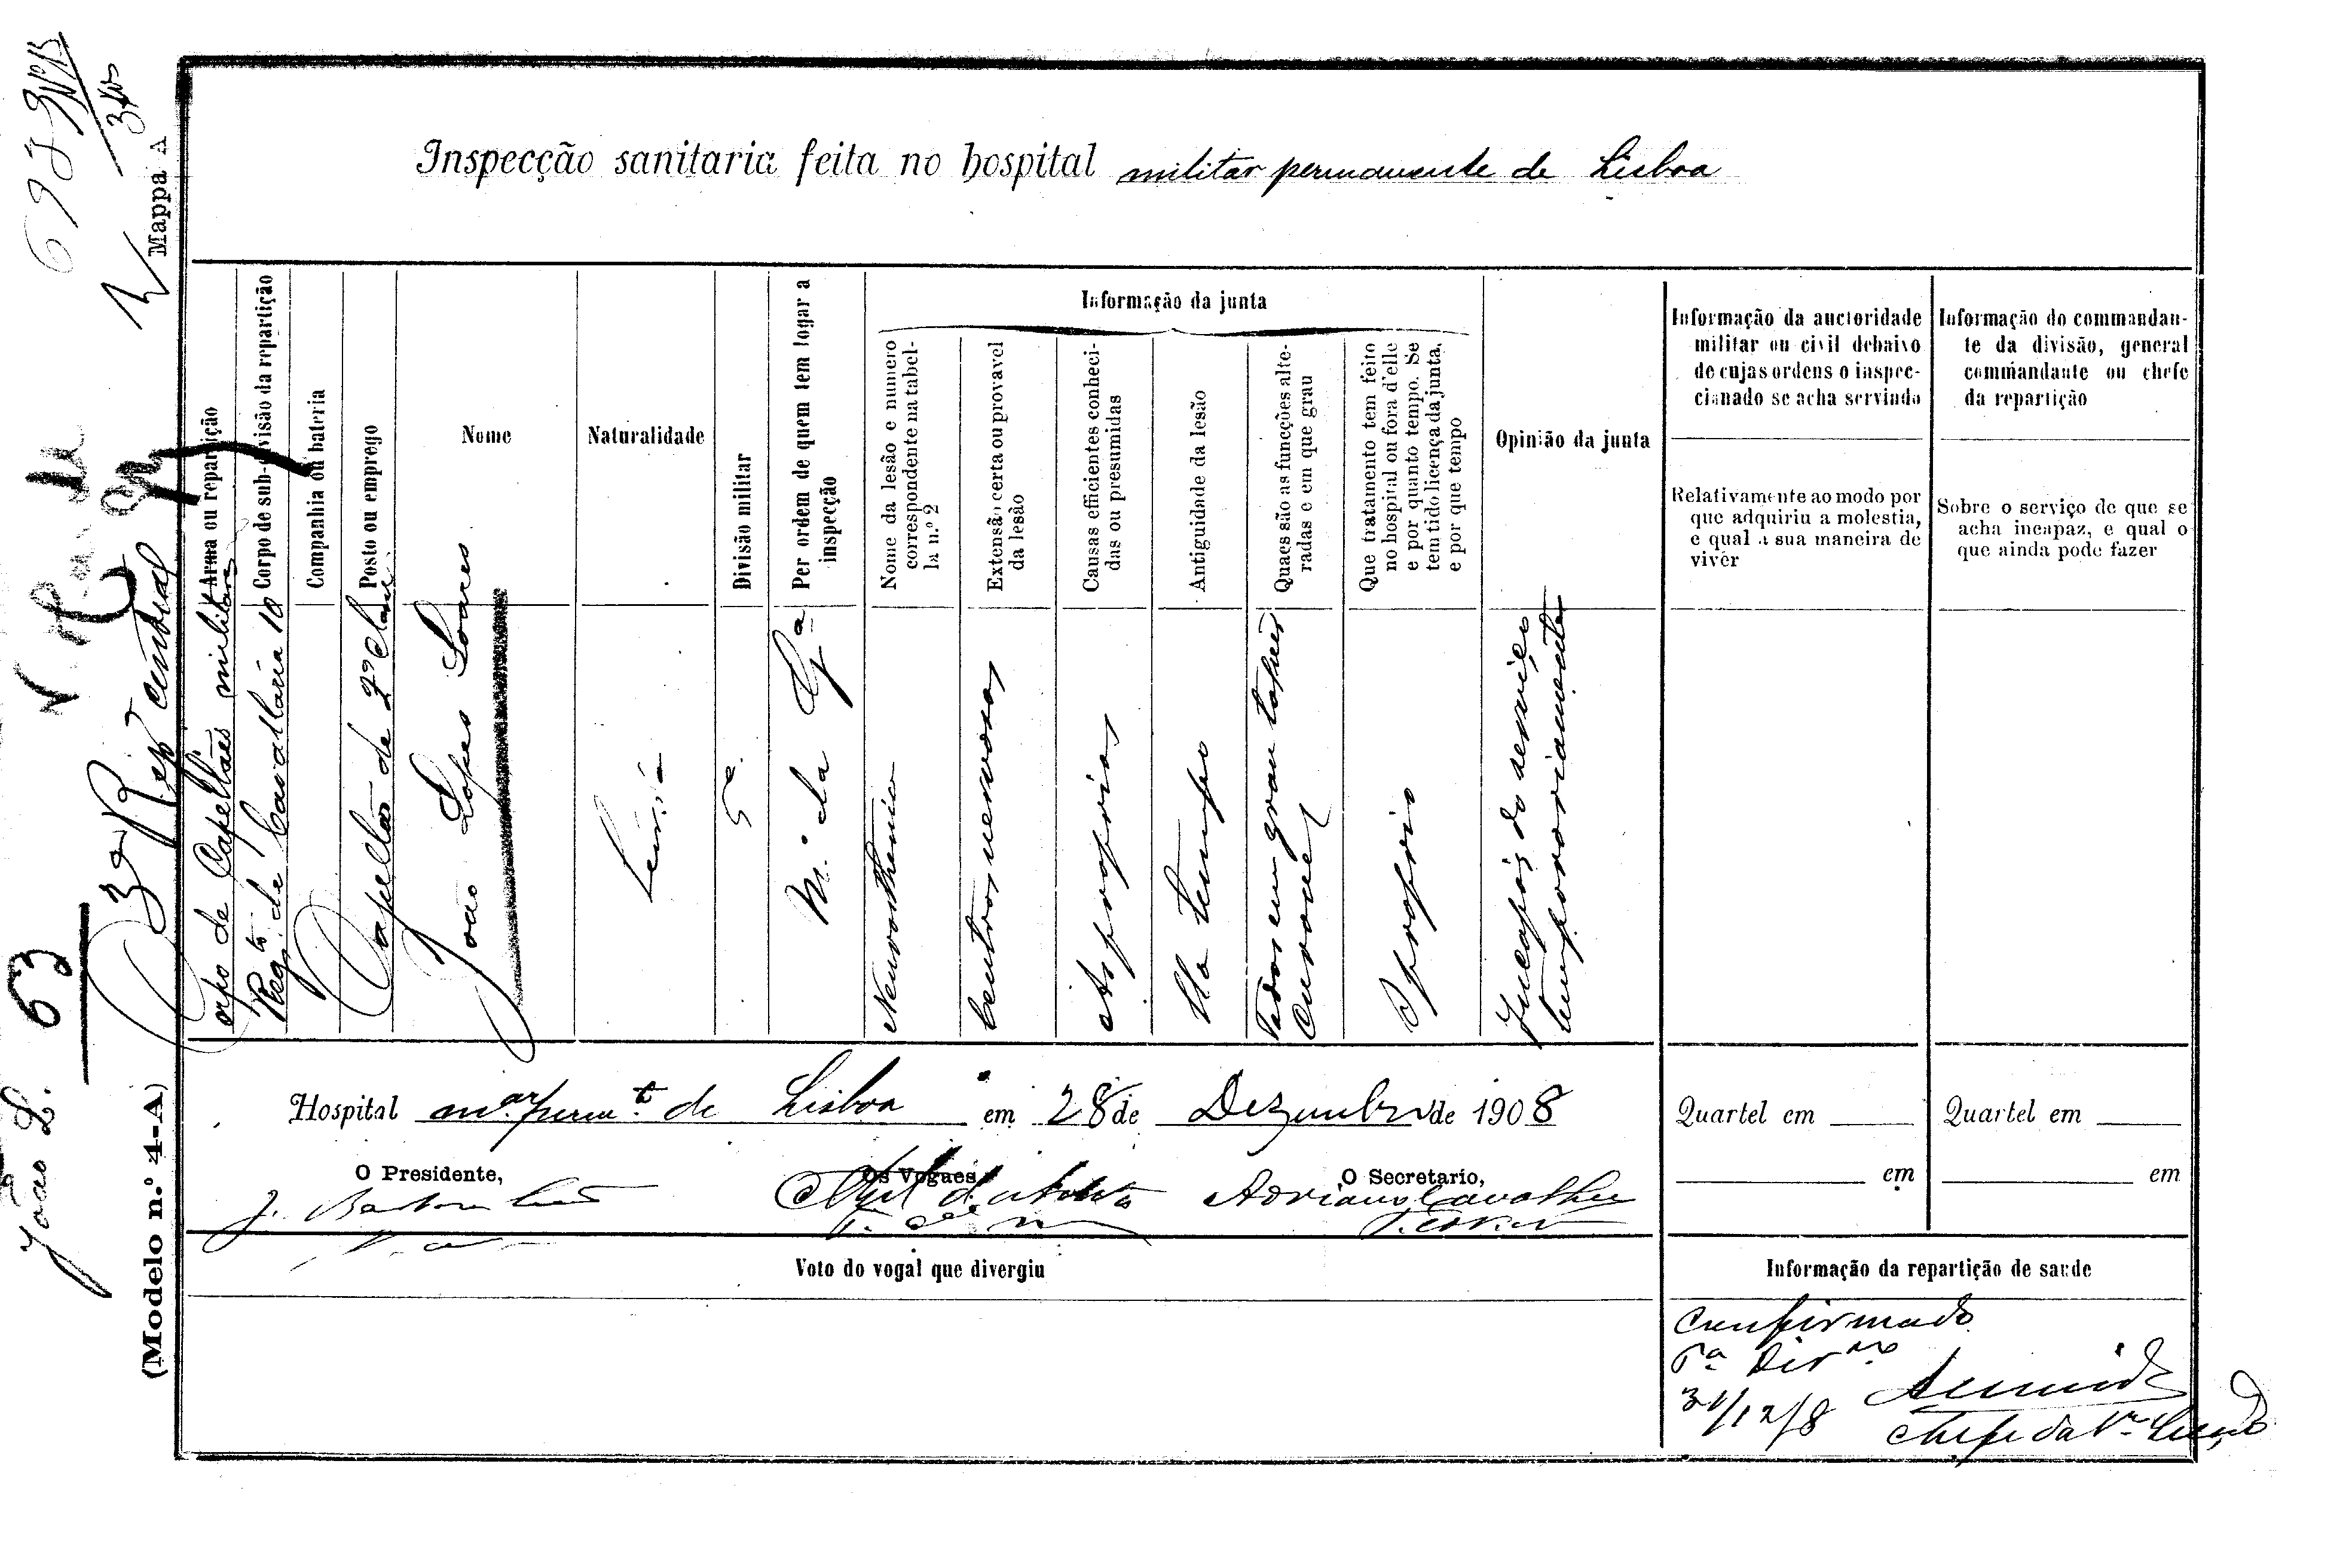 Mappa A
(Modelo n.º 4-A)
João L. 63
3ª Repᵃᵒ central
Inspecção sanitaria feita no hospital militar permanente de Lisboa
Arma ou repartição
Corpo de Capellães militares
Corpo de sub-divisão da repartição
Regᵗᵒ de Cavallaria 10
Companhia ou bateria
Posto ou emprego
Capellão de 2ª classe
Nome
João Lopes Soares
Naturalidade
Leiria
Divisão militar
5ª
Per ordem de quem tem logar a
inspecção
M. da Gᵃ
Informação da junta
Nome da lesão e numero
correspondente na tabel-
la n.º 2
Neurasthenia
Extensão certa ou provavel
da lesão
Centros nervosos
Causas efficientes conheci-
das ou presumidas
As proprias
Antiguidade da lesão
Ha tempo
Quaes são as funcções alte-
radas e em que grau
Todas em grau
Que tratamento tem feito
no hospital ou fora d'elle
e por quanto tempo. Se
tem tido licença da junta,
e por que tempo
O proprio
Opinião da junta
Incapaz do serviço
temporariamente
Informação da auctoridade
militar ou civil debaixo
de cujas ordens o inspec-
cionado se acha servindo
Relativamente ao modo por
que adquiriu a molestia,
e qual a sua maneira de
viver
Informação do commandan-
te da divisão, general
commandante ou chefe
da repartição
Sobre o serviço de que se
acha incapaz, e qual o
que ainda pode fazer
Hospital m.ᵃʳ perm.ᵗᵉ de Lisboa em 28 de Dezembro de 1908
Quartel em
em
Quartel em
em
O Presidente,
Os Vogaes,
O Secretario,
Adriano
Voto do vogal que divergiu
Informação da repartição de saude
Confirmado
31/12/8
Chefe da 1ª Secção